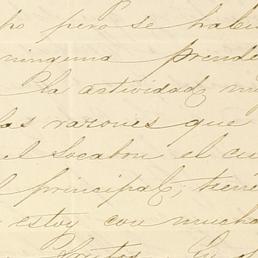 pero se habi
ninguna prende
la actividad, mu
las razones que
el Socabon el cu
l principal, tiene
estoy con mucho